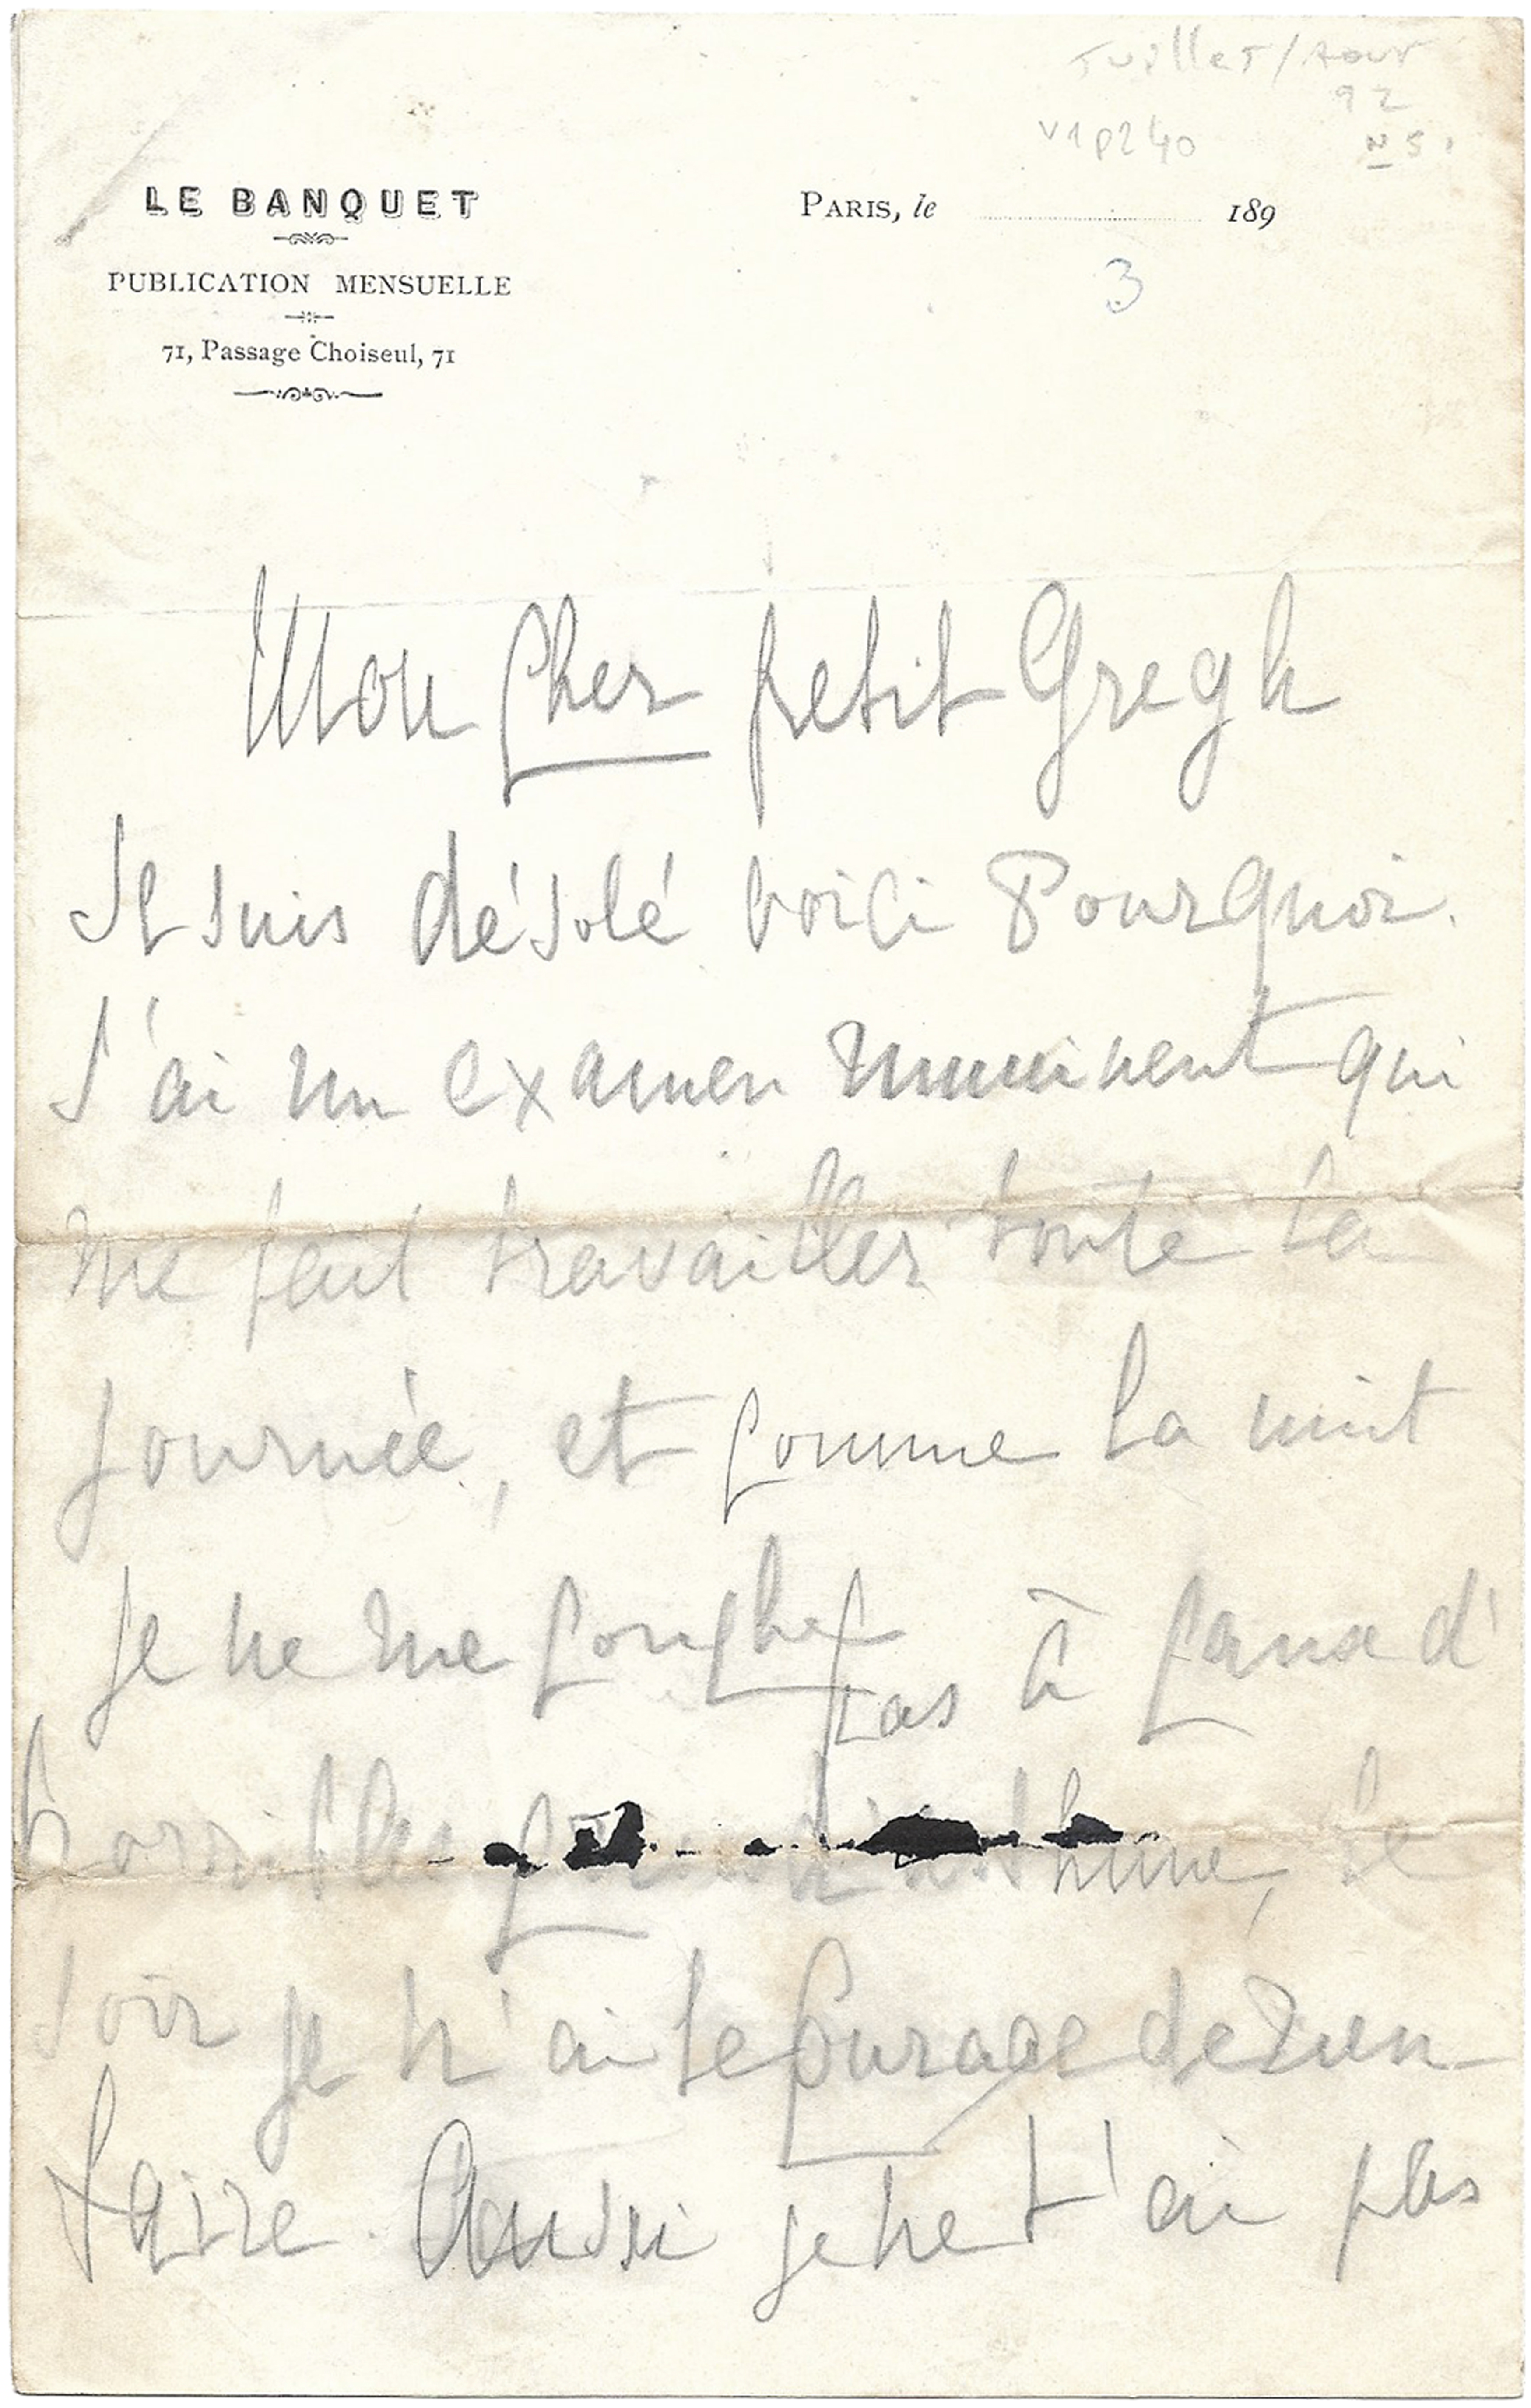 Juillet / Aout
92
V1 p240
N 5.
LE BANQUET
PUBLICATION MENSUELLE
71, Passage Choiseul, 71
PARIS, le 189
3
Mon Cher petit Gregh
Je suis désolé voici Pourquoi.
J'ai un examen imminent qui
me fait travailler toute la
journée, et comme la nuit
je ne me couche pas à cause d'
horribles crises d'asthme, le
soir je n'ai le courage de rien
faire. Aussi je ne t'ai pas